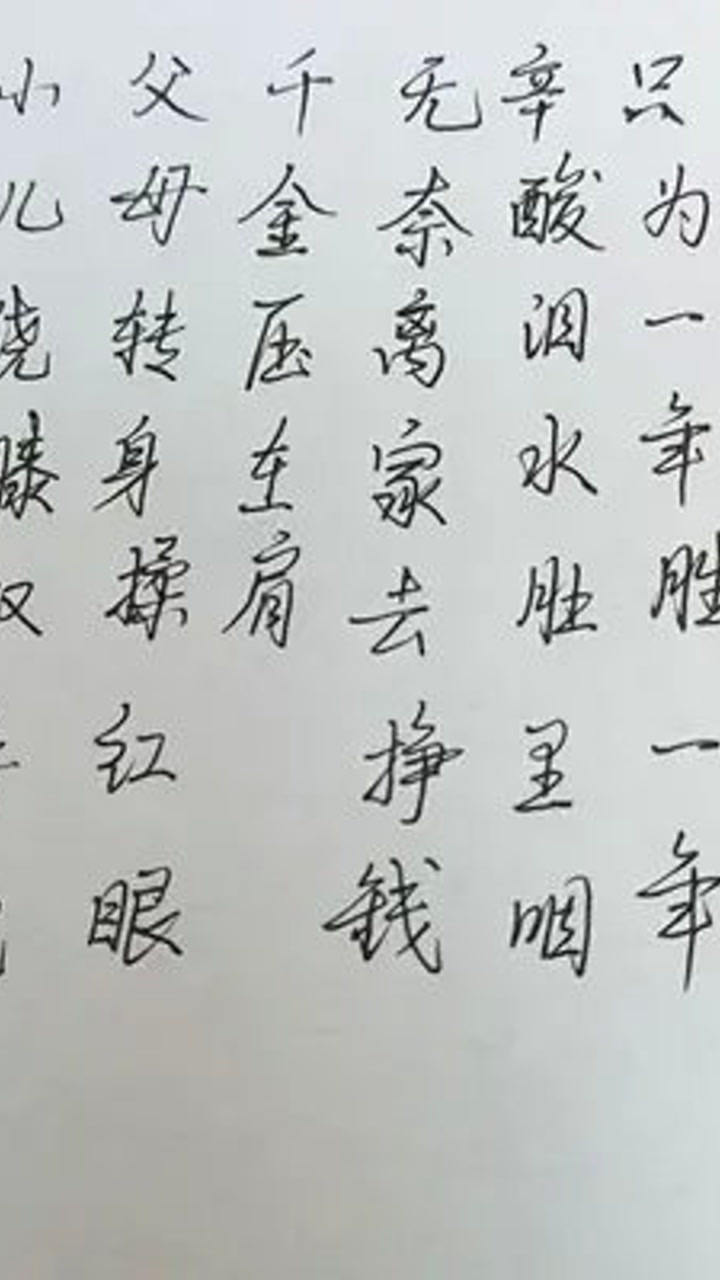 只为一年胜一年
辛酸泪水肚里咽
无奈离家去挣钱
千金压在肩
父母转身操红眼
小儿绕膝